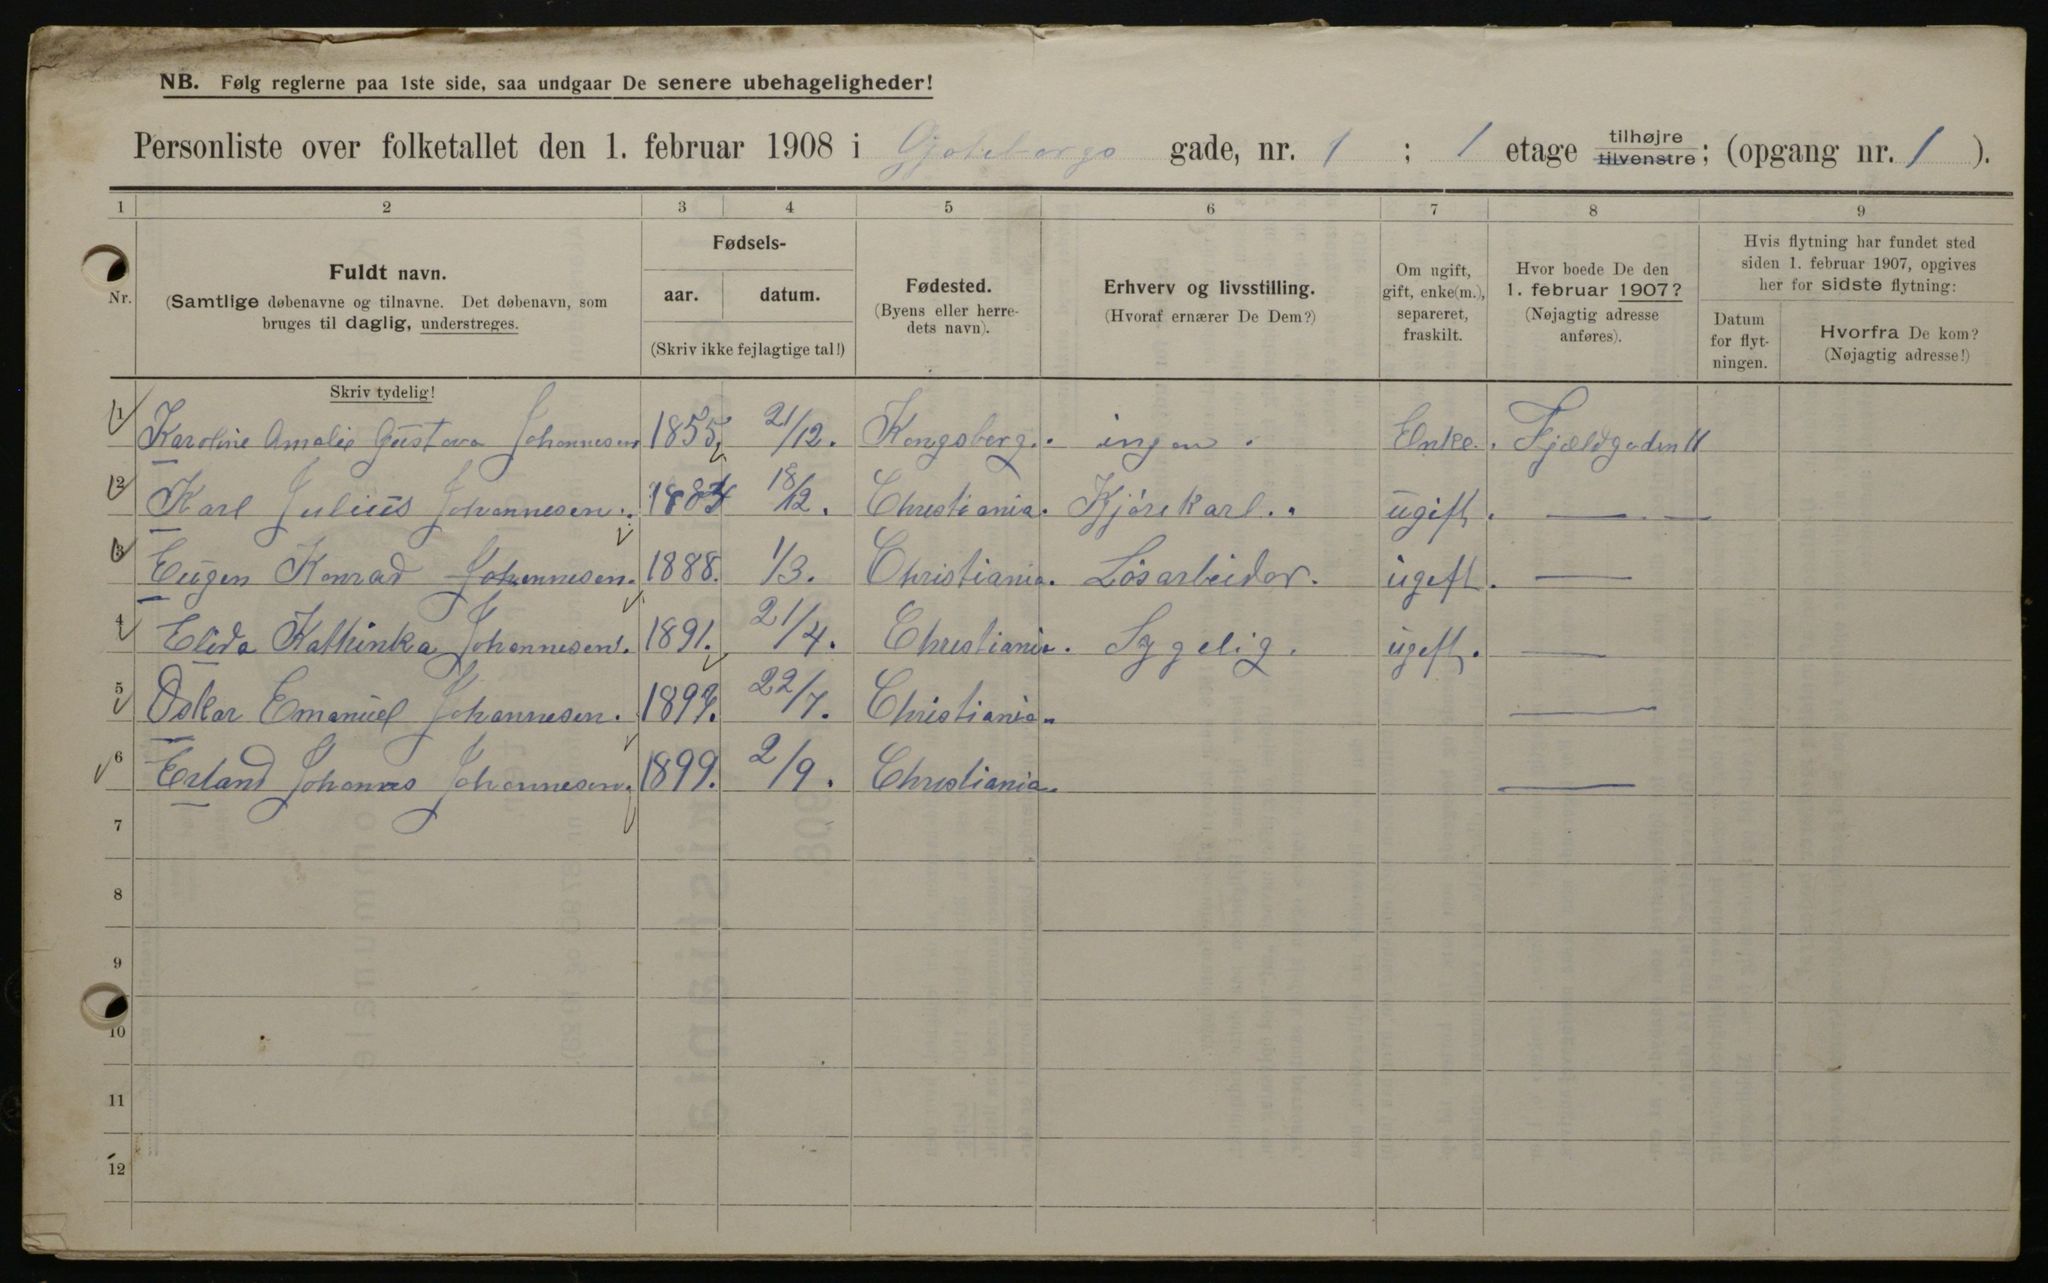 NB. Følg reglerne paa 1ste side, saa undgaar De senere ubehageligheder!
Personliste over folketallet den 1. februar 1908 i Gjøteborgs gade, nr. 1 ; 1 etage tilhøjre tilvenstre; (opgang nr. 1 ).
1 2 3 4 5 6 7 8 9
Nr.
Fuldt navn.
(Samtlige døbenavne og tilnavne. Det døbenavn, som
bruges til daglig, understreges.
Skriv tydelig!
Fødsels-
aar. datum.
(Skriv ikke fejlagtige tal!)
Fødested.
(Byens eller herre-
dets navn).
Erhverv og livsstilling.
(Hvoraf ernærer De Dem?)
Om ugift,
gift, enke(m.),
separeret,
fraskilt.
Hvor boede De den
1. februar 1907?
(Nøjagtig adresse
anføres).
Hvis flytning har fundet sted
siden 1. februar 1907, opgives
her for sidste flytning:
Datum
for flyt-
ningen.
Hvorfra De kom?
(Nøjagtig adresse!)
1 Karoline Amalie Gustava Johannesen 1855. 21/12. Kongsberg. ingen. Enke. Fjeldgaden 11
2 Karl Julius Johannesen. 18/12. Christiania. Kjørekarl. ugift. —
3 Eugen Konrad Johannesen. 1888. 1/3. Christiania. Løsarbeider. ugift. —
4 Elida Kathinka Johannesen. 1891. 21/4. Christiania. Sygelig. ugift. —
5 Oskar Emanuel Johannesen. 22/7. Christiania. —
6 Erland Johannes Johannesen. 1899. 2/9. Christiania. —
7
8
9
10
11
12